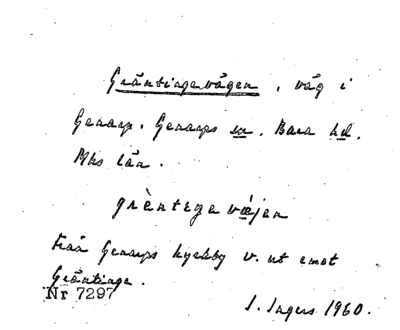 Gräntingevägen, väg i
Genarp. Genarps sn. Bara hd.
Mhs län.
grèntege vǽjen
Från Genarps kyrkby v. ut emot
Gräntinge.
Nr 7297
I. Ingers 1960.